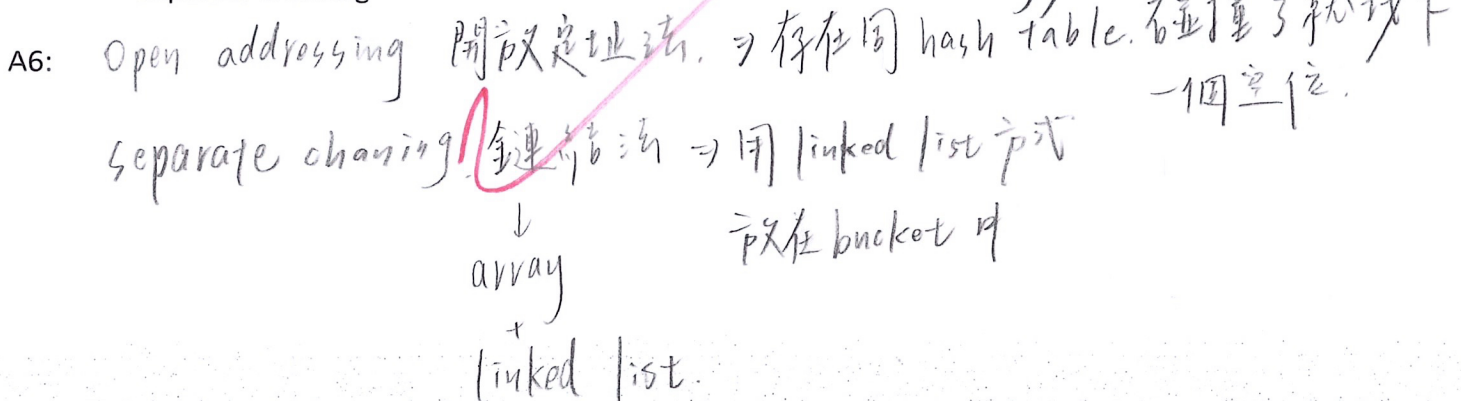 A6: Open addressing 開放定址法. ⇒ 存在同 hash table. 碰撞了就找下
一個空位.
separate chaning 鏈連結法 ⇒ 用 linked list 方式
↓
放在 bucket 中
array
+
linked list.